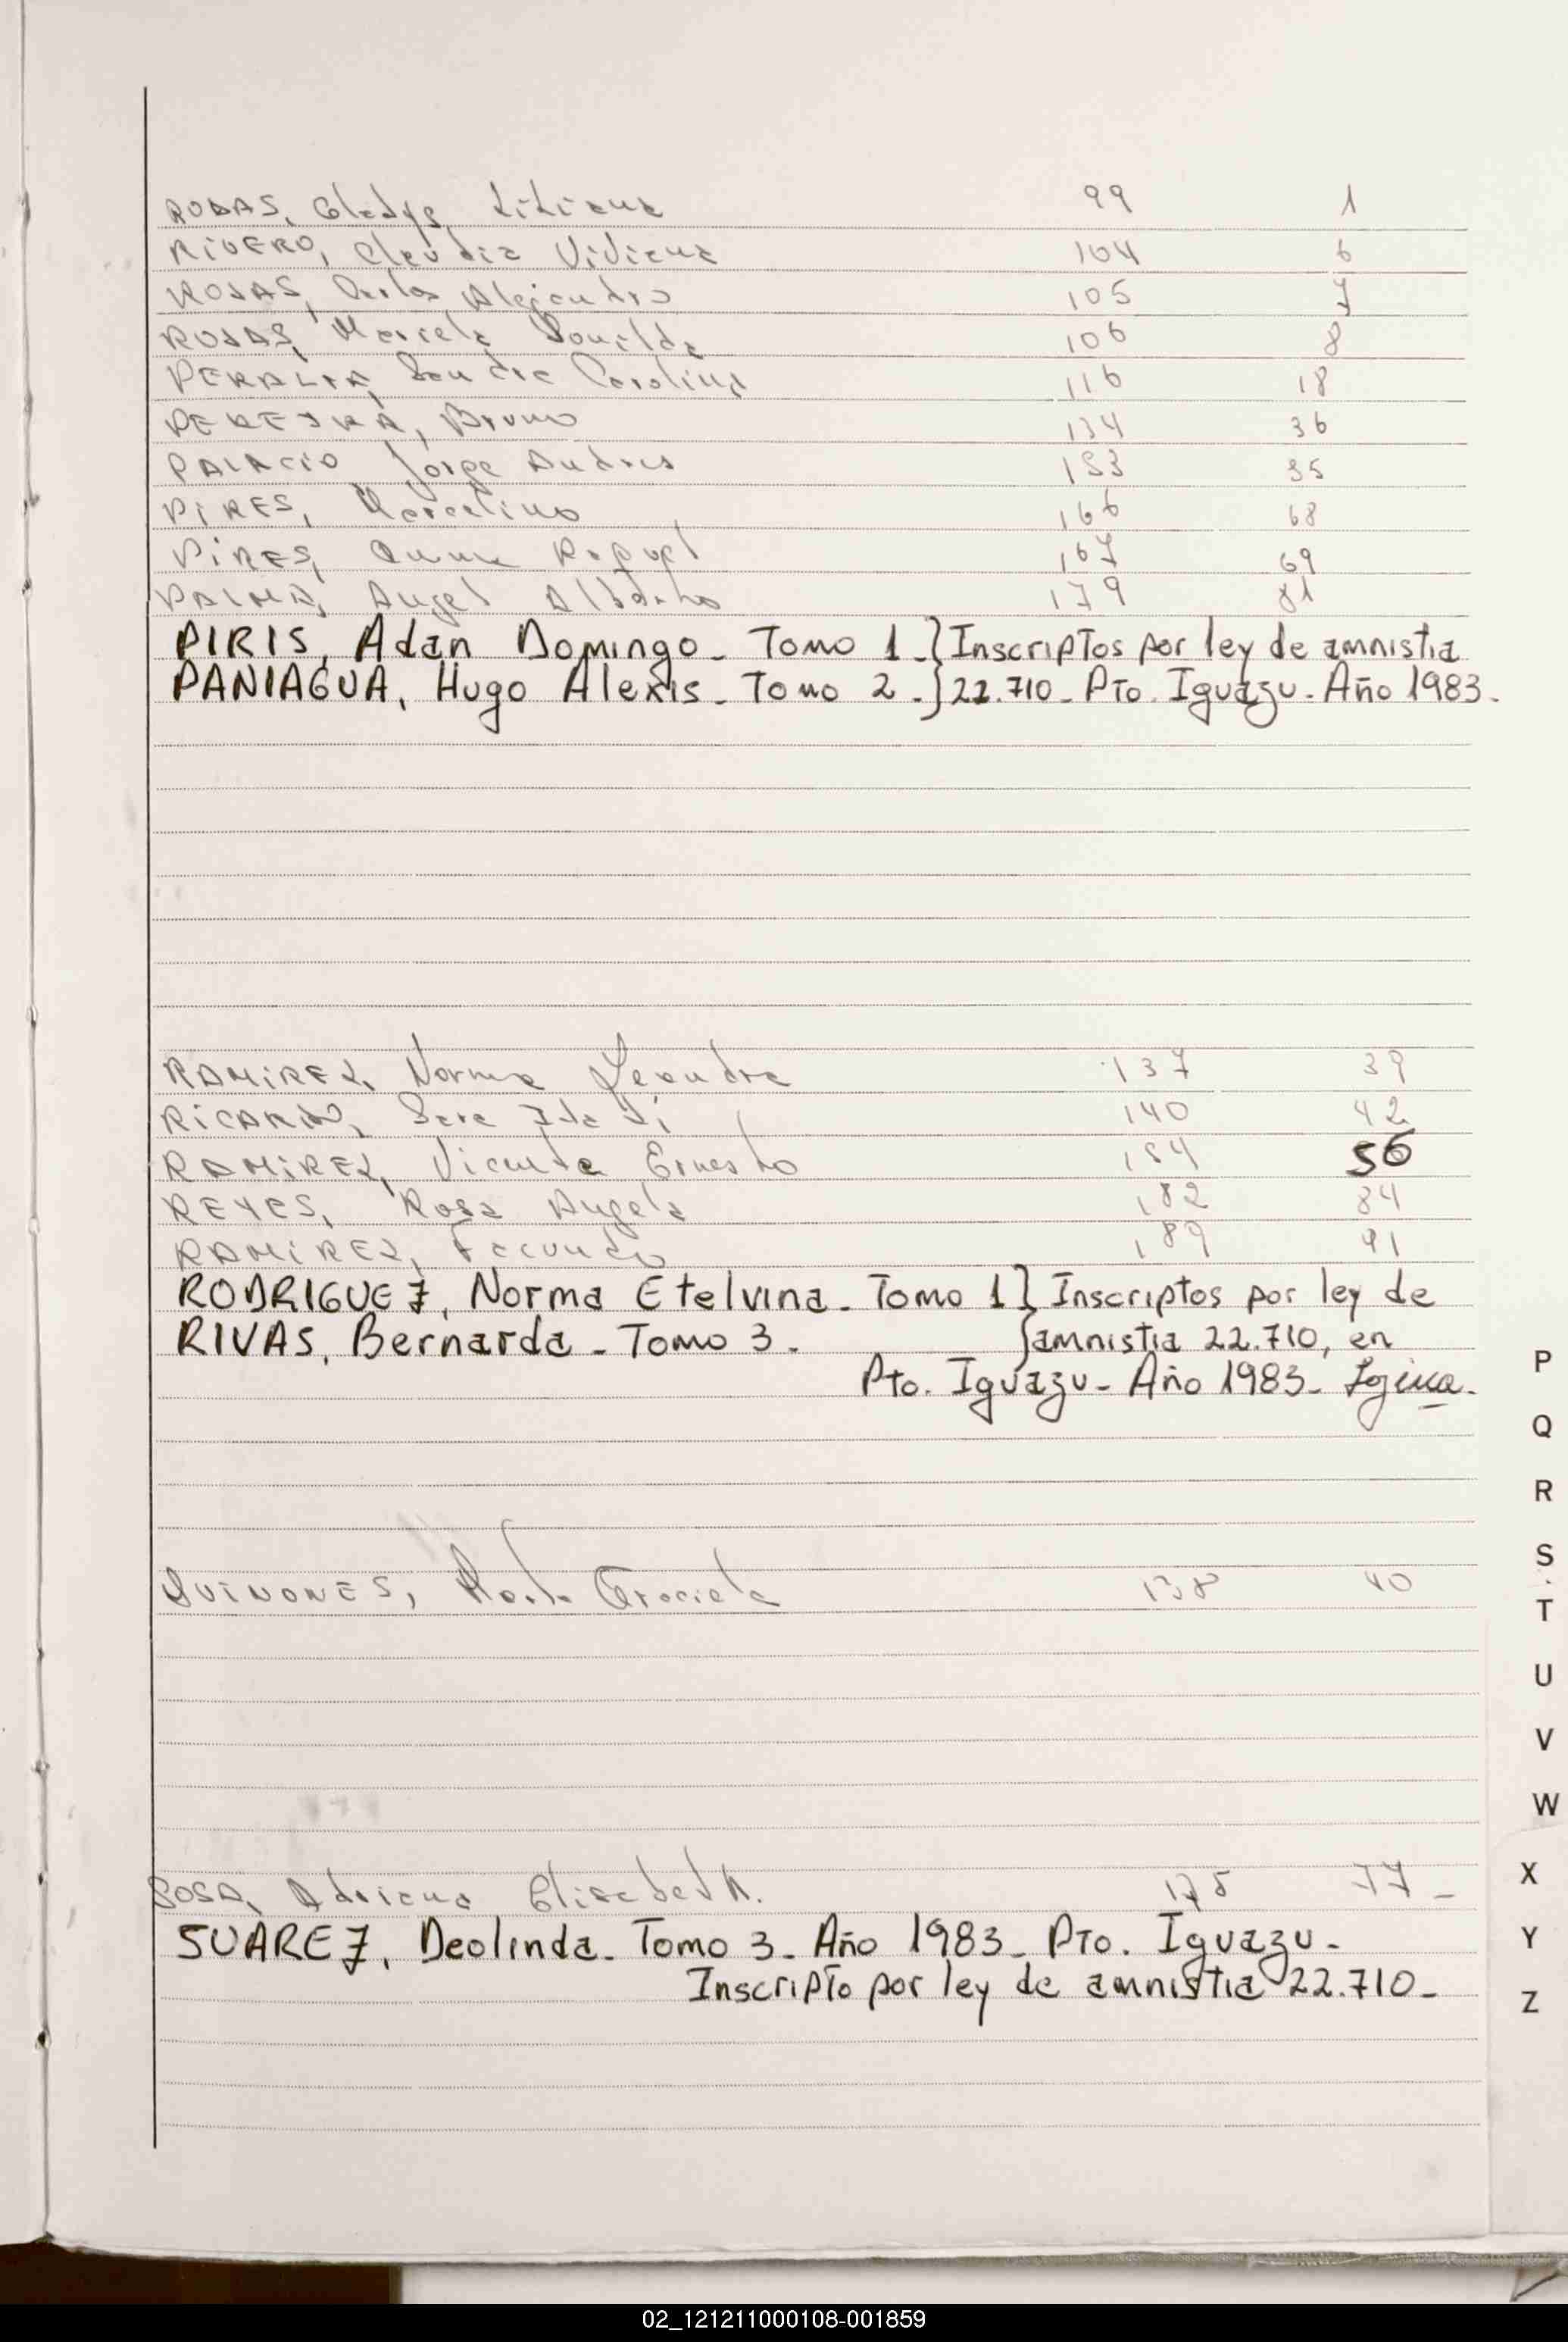 RODAS, Gladys Liliana 99 1
RIVERO, Claudia Viviana 104 6
ROJAS, Carlos Alejandro 105 7
ROJAS, Marcela 106 8
PERALTA, Sandra Carolina 116 18
PEREIRA, Bruno 134 36
PALACIO Jorge Andres 153 55
PIRES, Marcelino 166 68
PIRES, 167 69
PALMA, Angel Alberto 179 81
PIRIS, Adan Domingo - Tomo 1 -} Inscriptos por ley de amnistia
PANIAGUA, Hugo Alexis - Tomo 2 -} 22.710 - Pto. Iguazu - Año 1983 -
RAMIREZ, Norma 137 39
RICARDO, Sara 140 42
RAMIREZ, Vicente Ernesto 154 56
REYES, Rosa Angela 182 84
RAMIREZ, Facundo 189 91
RODRIGUEZ, Norma Etelvina - Tomo 1 } Inscriptos por ley de
RIVAS, Bernarda - Tomo 3 - } amnistia 22.710, en
Pto. Iguazu - Año 1983 -
P
Q
R
S
T
U
V
W
X
Y
Z
QUINONES, Graciela 138 40
SOSA, Adriana Elisabeth. 175 77 -
SUAREZ, Deolinda - Tomo 3 - Año 1983 - Pto. Iguazu -
Inscripto por ley de amnistia 22.710 -
02_121211000108-001859